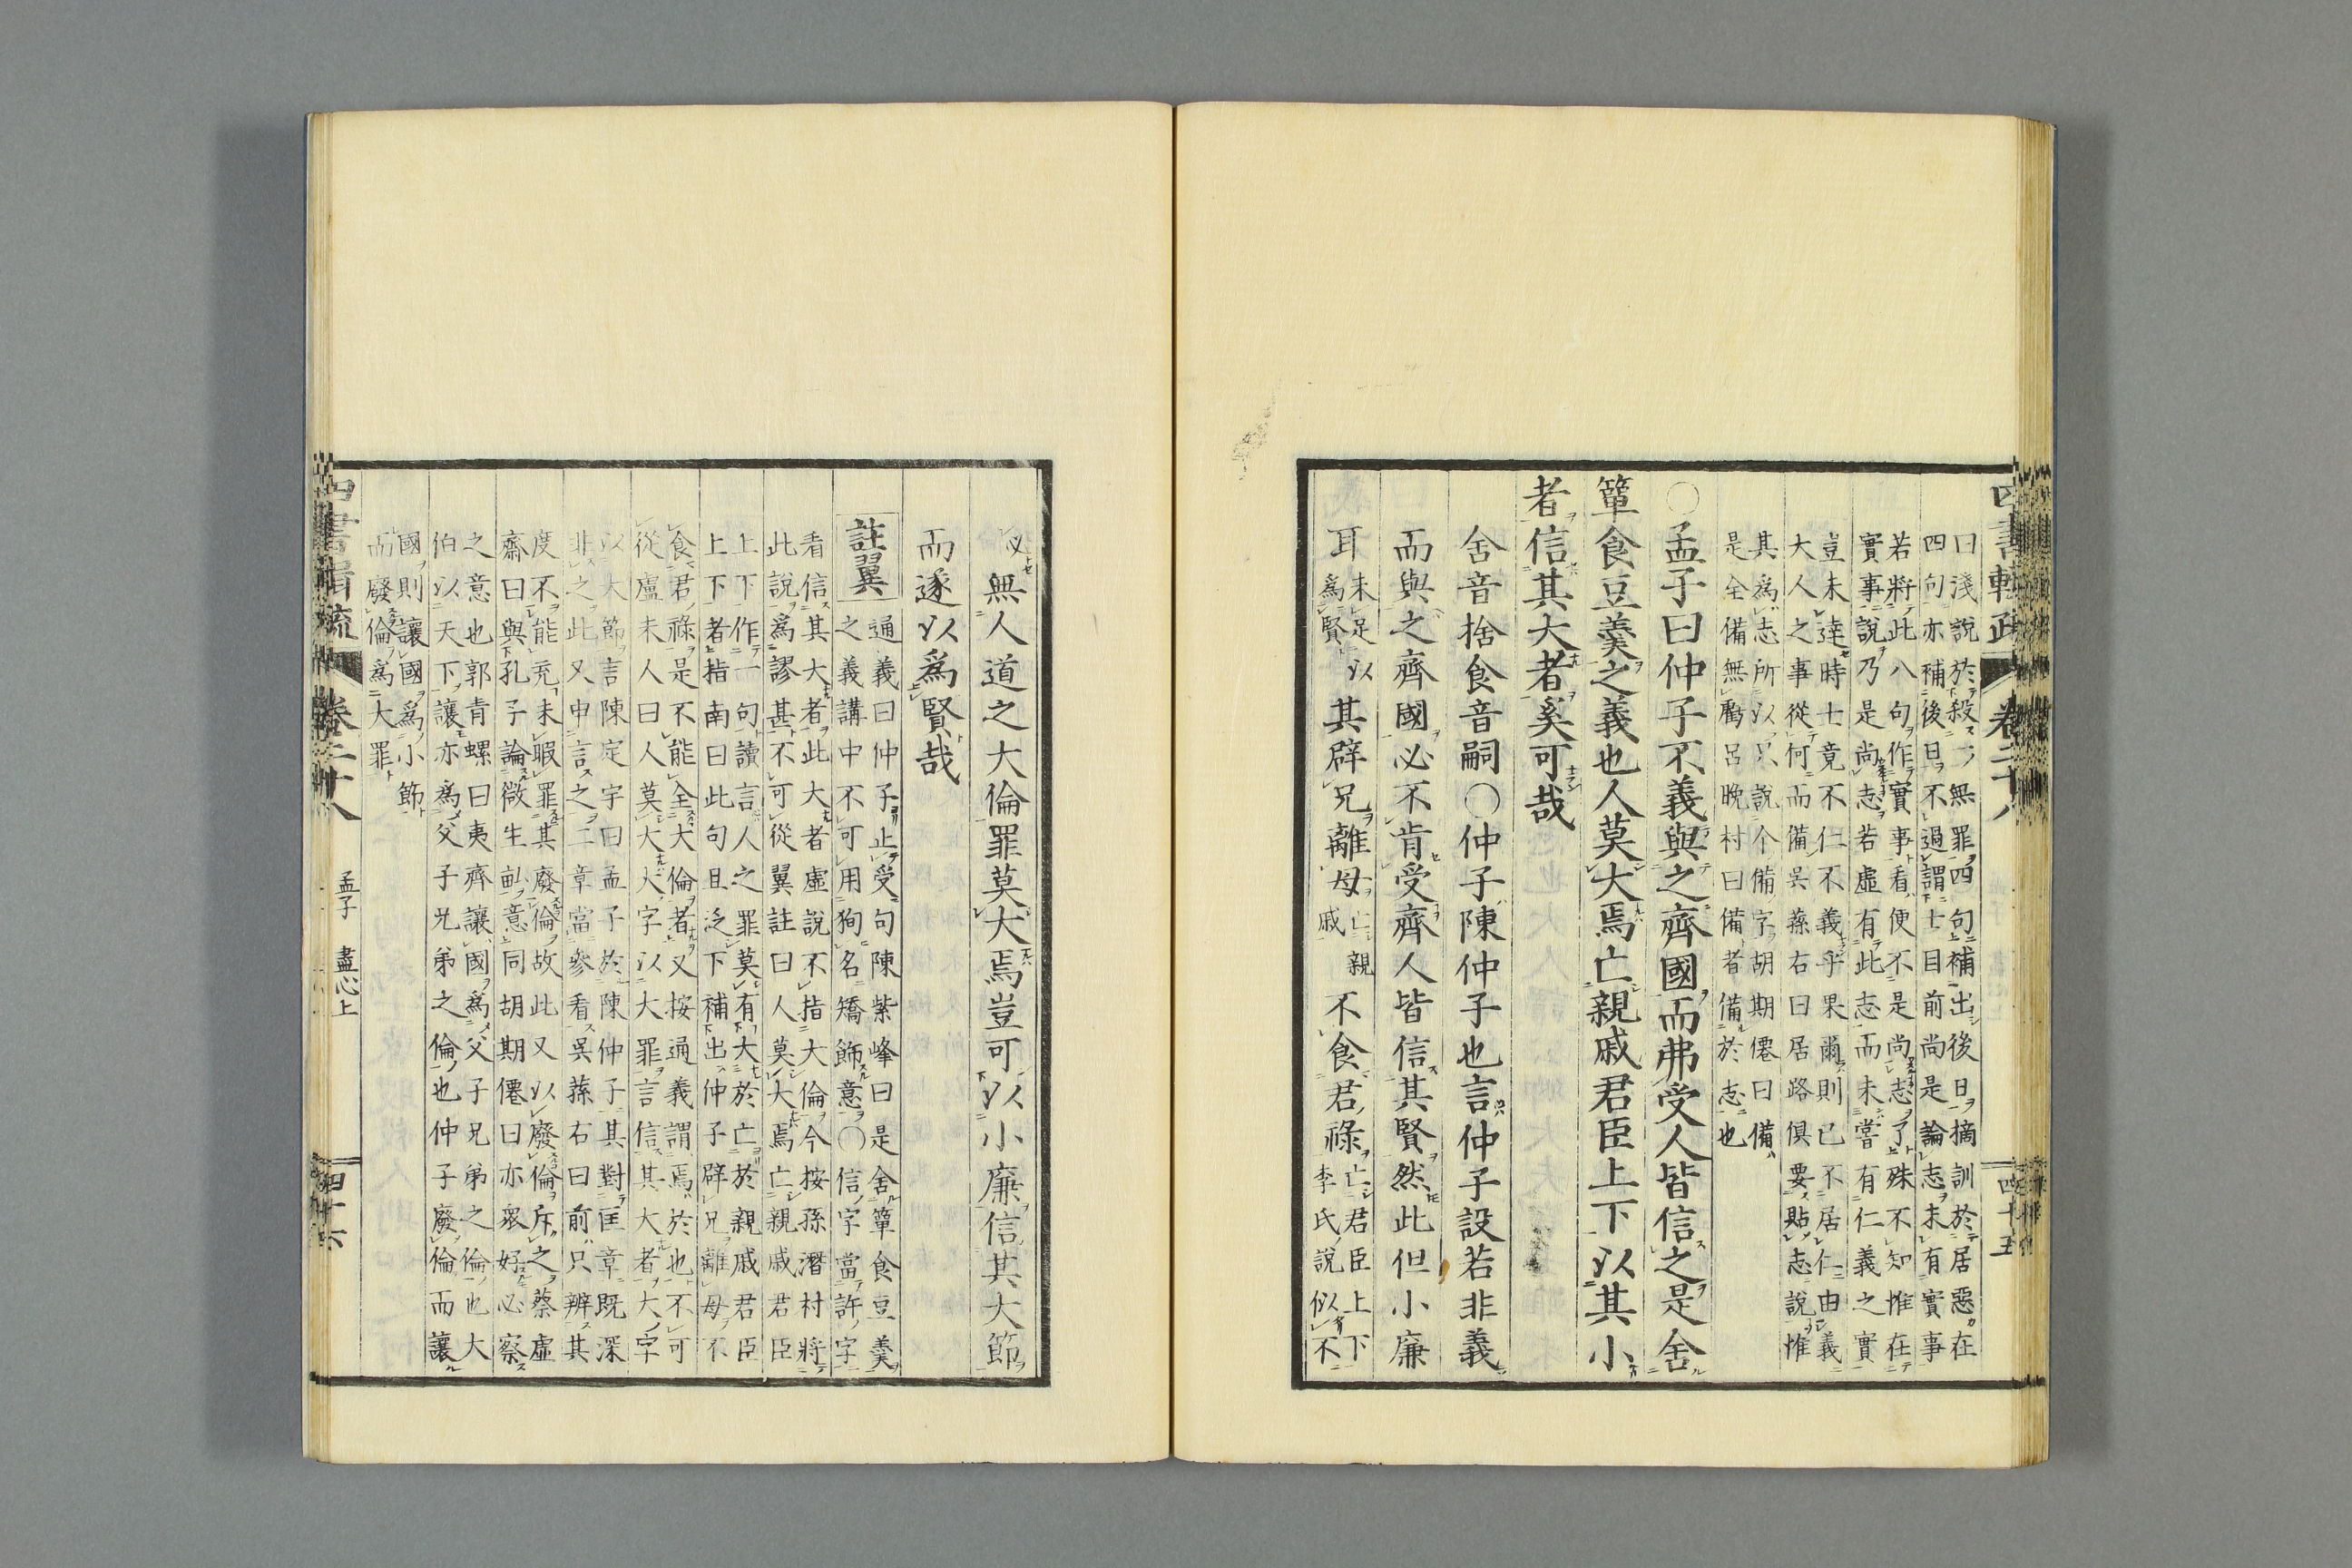 曰淺說於殺一無罪四句補出後日摘訓於居惡在
四句亦補後日不過謂士目前尚是論志未有實事
若將此八句作實事看便不是尚志了殊不知惟在
實事說乃是尚志若虛有此志而未嘗有仁義之實
豈未達時士竟不仁不義乎果爾則已不居仁由義
大人之事從何而備吳蓀右曰居路俱要貼志說惟
其為志所以只說个備字胡期僊曰備
是全備無虧呂晚村曰備者備於志也
〇孟子曰仲子不義與之齊國而弗受人皆信之是舍
簞食豆羹之義也人莫大焉亡親戚君臣上下以其小
者信其大者奚可哉
舍音捨食音嗣〇仲子陳仲子也言仲子設若非義
而與之齊國必不肯受齊人皆信其賢然此但小廉
耳未足以為賢其辟兄離母亡親戚不食君祿亡君臣上下李氏說似不
四書輯疏 卷二十八 四十五
必無人道之大倫罪莫大焉豈可以小廉信其大節
而遂以爲賢哉
註翼 通義曰仲子止受句陳紫峰曰是舍簞食豆羹
之義講中不可用狥名矯飾意〇信字當許字
看信其大者此大者虛說不指大倫今按孫潛村將
此說爲謬甚不可從翼註曰人莫大焉亡親戚君臣
上下作一句讀言人之罪莫有大於亡於親戚君臣
上下者指南曰此句且泛下補出仲子辟兄離母不
食君祿是不能全大倫者又按通義謂焉於也不可
從盧未人曰人莫大大字以大罪言信其大者大字
以大節言陳定宇曰孟子於陳仲子其對匡章既深
非之此又申言之二章當參看吳蓀右曰前只辨其
度不能充未暇罪其廢倫故此又以廢倫斥之蔡虛
齋曰與孔子論微生畝意同胡期僊曰亦衆好必察
之意也郭青螺曰夷齊讓國爲父子兄弟之倫也大
伯以天下讓亦爲父子兄弟之倫也仲子廢倫而讓
國則讓國爲小節
而廢倫爲大罪
四書輯疏 卷二十八 孟子 盡心上 四十六